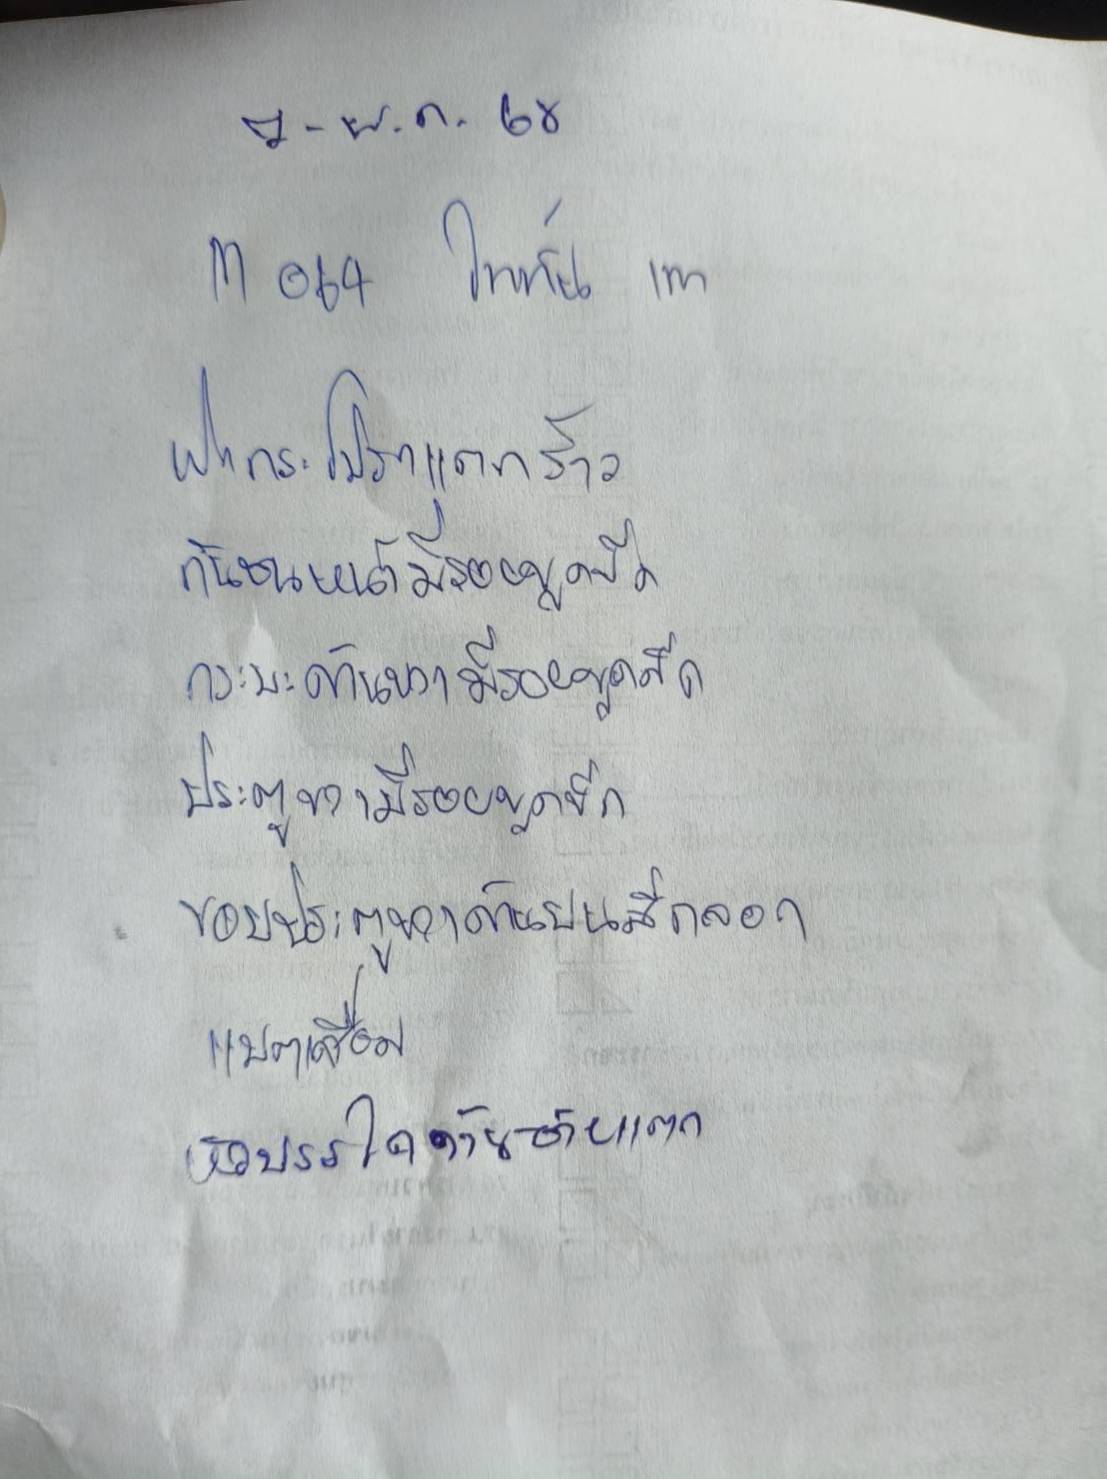 พ.ค. 68
M 064 ไททัน เทา
ฝากระโปรงแตกร้าว
กันชนหน้ามีรอยขูดขีด
กระบะด้านขวามีรอยขูดขีด
ประตูขวามีรอยขูดขีด
ขอบประตูขวาด้านบนสีถลอก
แบตเสื่อม
บรรไดด้านซ้ายแตก